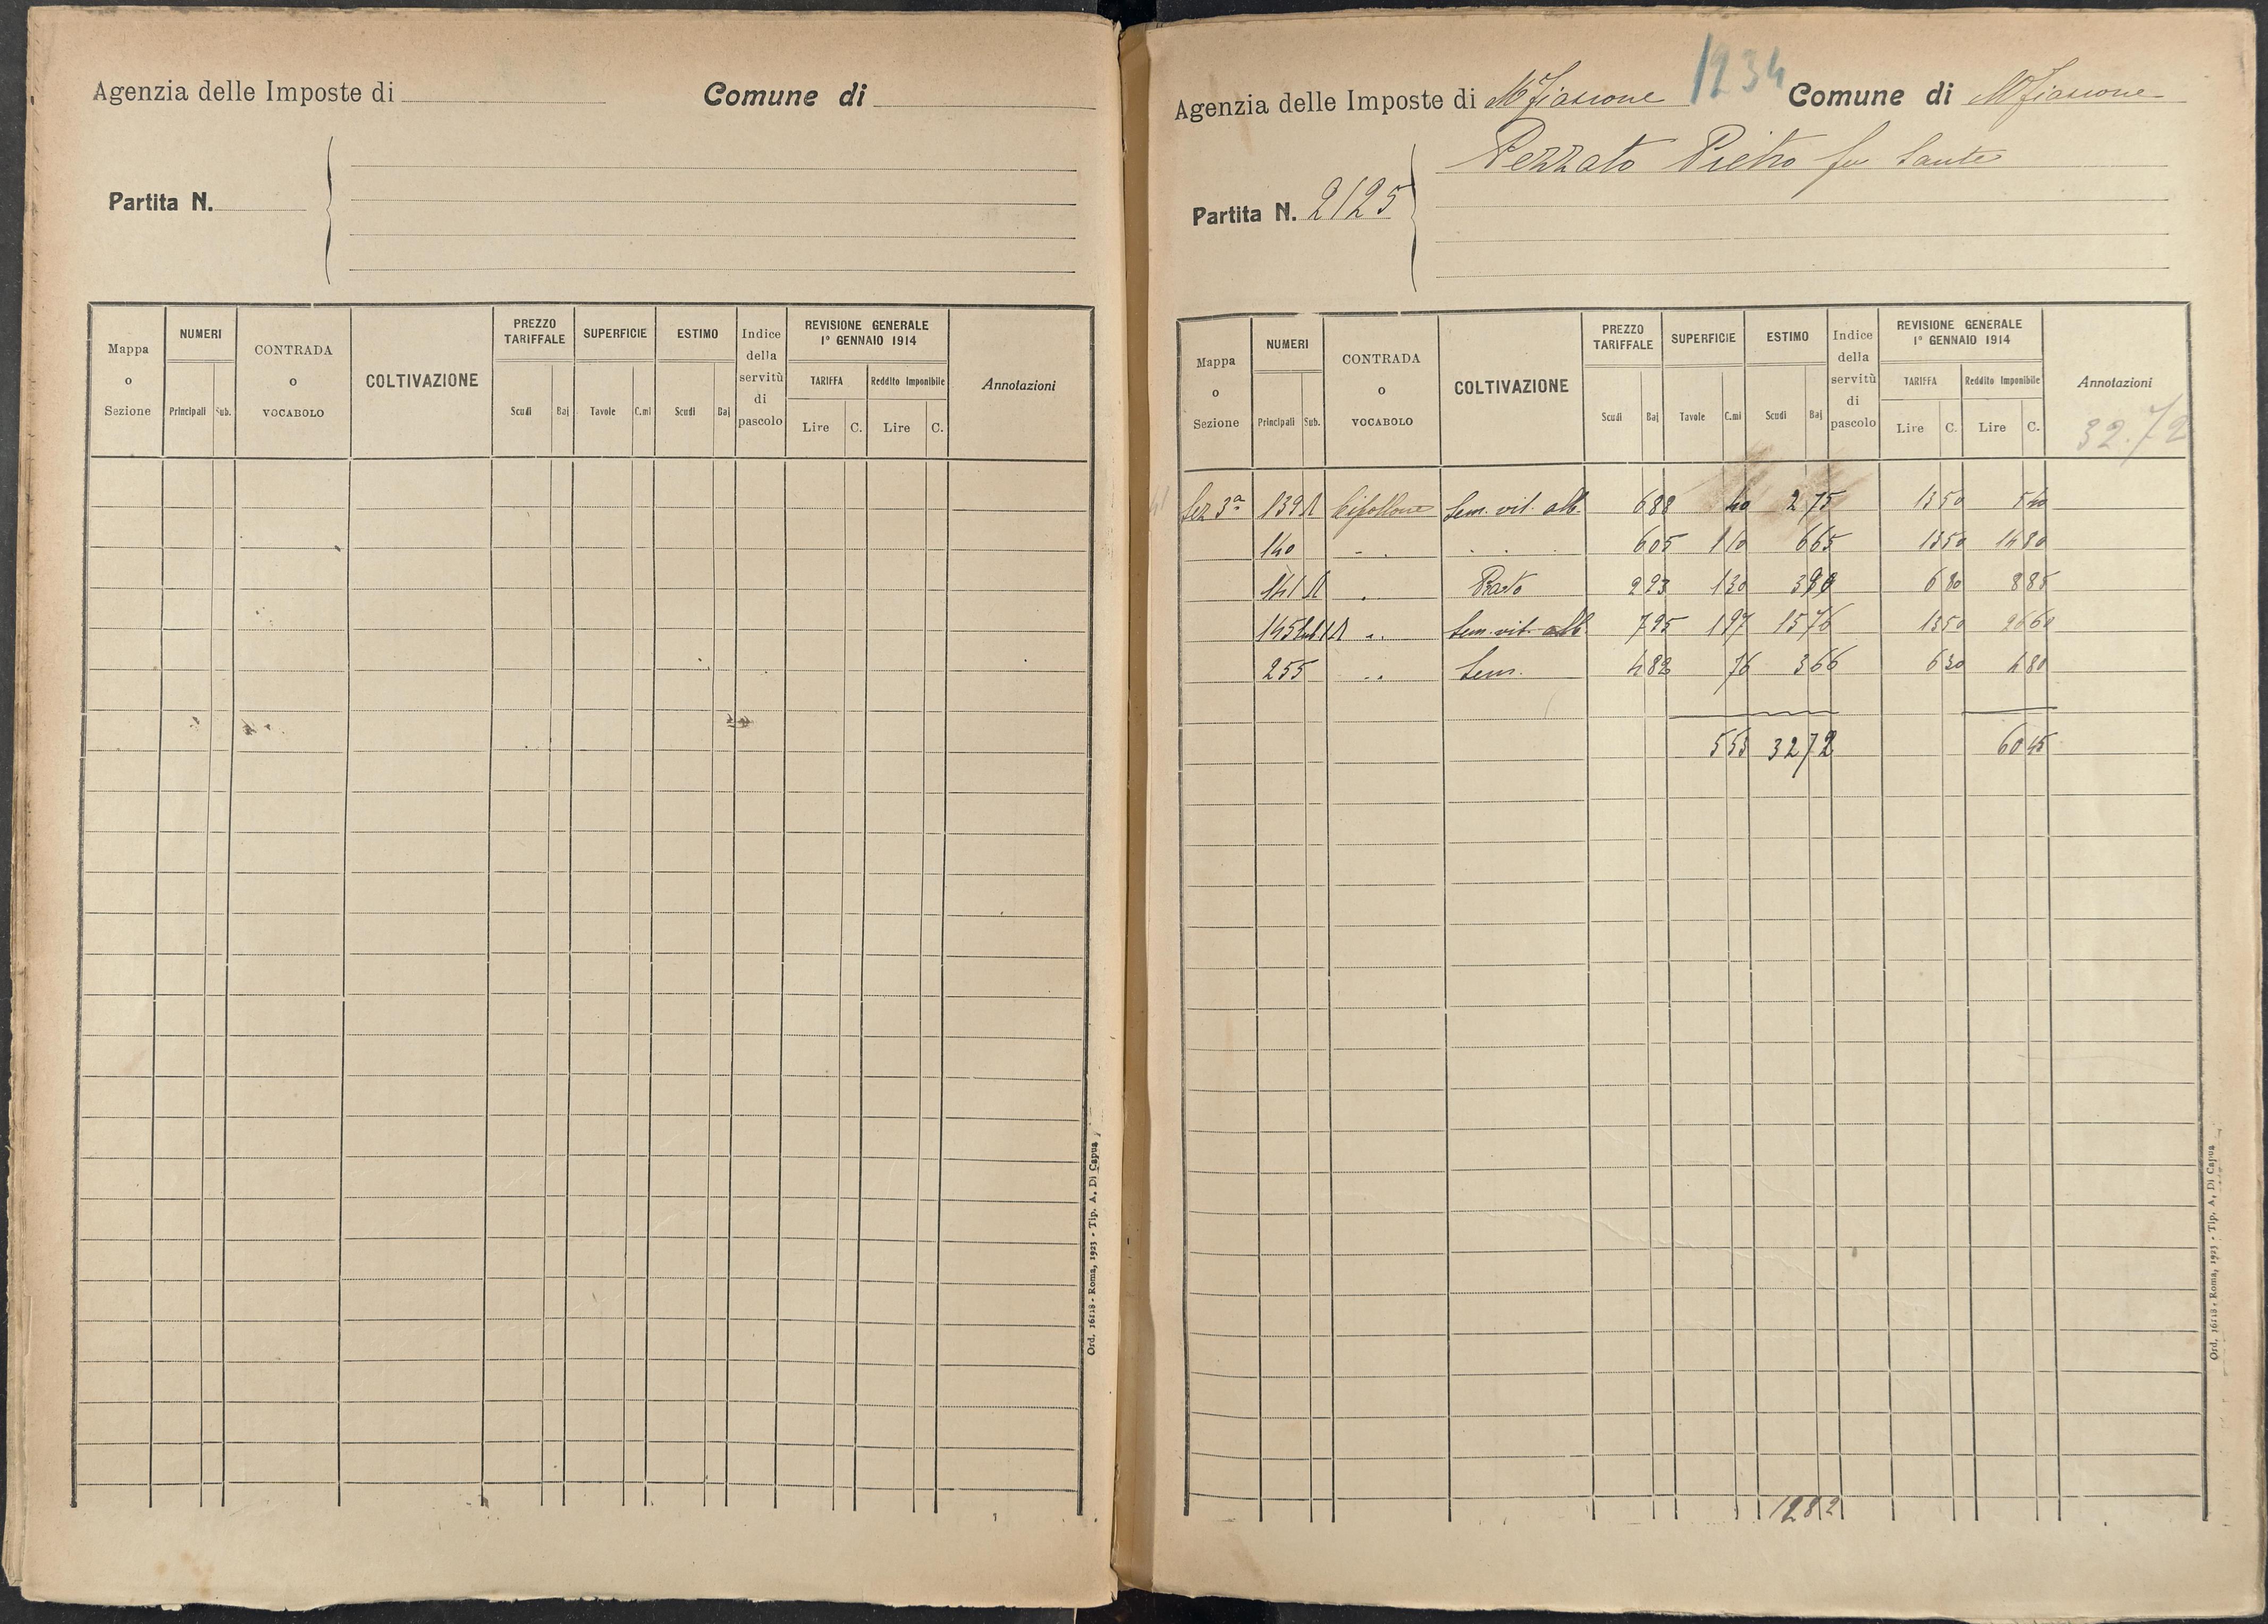 Agenzia delle Imposte di Comune di
Partita N.
Mappa o Sezione NUMERI Principali Sub. CONTRADA o VOCABOLO COLTIVAZIONE PREZZO TARIFFALE Scudi Baj SUPERFICIE Tavole C.mi ESTIMO Scudi Baj Indice della servitù di pascolo REVISIONE GENERALE 1° GENNAIO 1914 TARIFFA Lire C. Reddito Imponibile Lire C. Annotazioni
Ord. 16118 - Roma, 1923 - Tip. A. Di Capua
1234
Agenzia delle Imposte di M Fiascone Comune di M Fiascone
Pezzato Pietro fu Sante
Partita N. 2125
Mappa o Sezione NUMERI Principali Sub. CONTRADA o VOCABOLO COLTIVAZIONE PREZZO TARIFFALE Scudi Baj SUPERFICIE Tavole C.mi ESTIMO Scudi Baj Indice della servitù di pascolo REVISIONE GENERALE 1° GENNAIO 1914 TARIFFA Lire C. Reddito Imponibile Lire C. Annotazioni
32.72
Sez 3ª 139 Cipollone Sem. vit. alb. 6 88 40 2 75 13 50 5 40
140 6 05 1 10 6 65 13 50 14 80
141 Prato 2 93 1 30 3 90 6 80 8 85
145 sub 1 Sem. vit. alb. 7 95 1 97 15 76 13 50 26 60
255 Sem. 4 82 76 3 66 6 30 4 80
5 53 32 72 60 45
1282
Ord. 16118 - Roma, 1923 - Tip. A. Di Capua